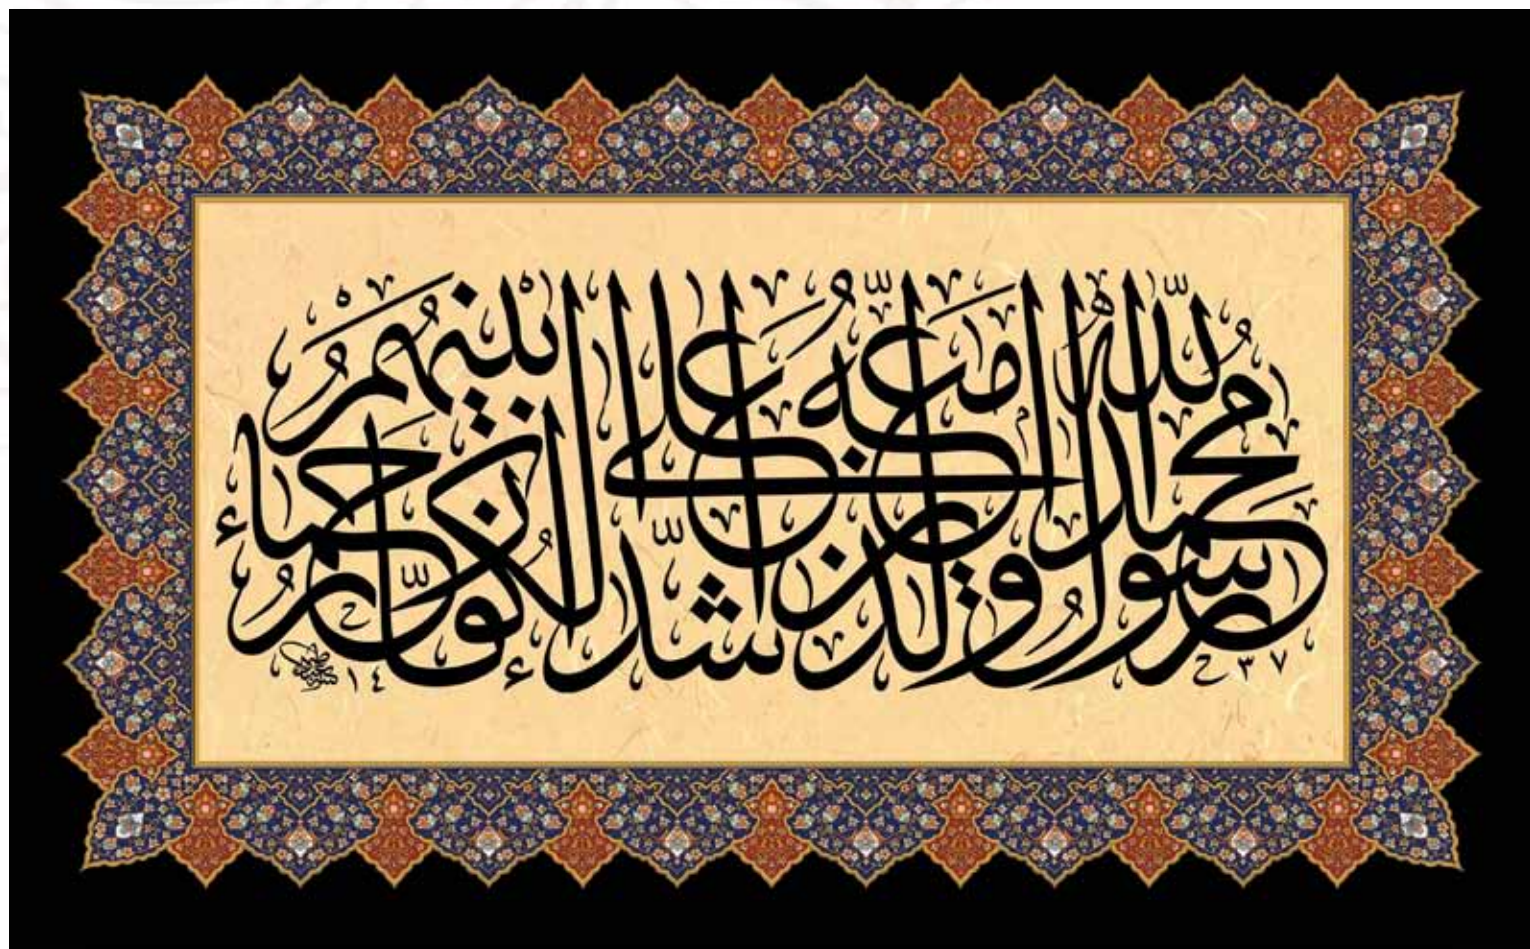 محمد رسول الله والذين معه أشداء على الكفار رحماء بينهم
١٤٣٧